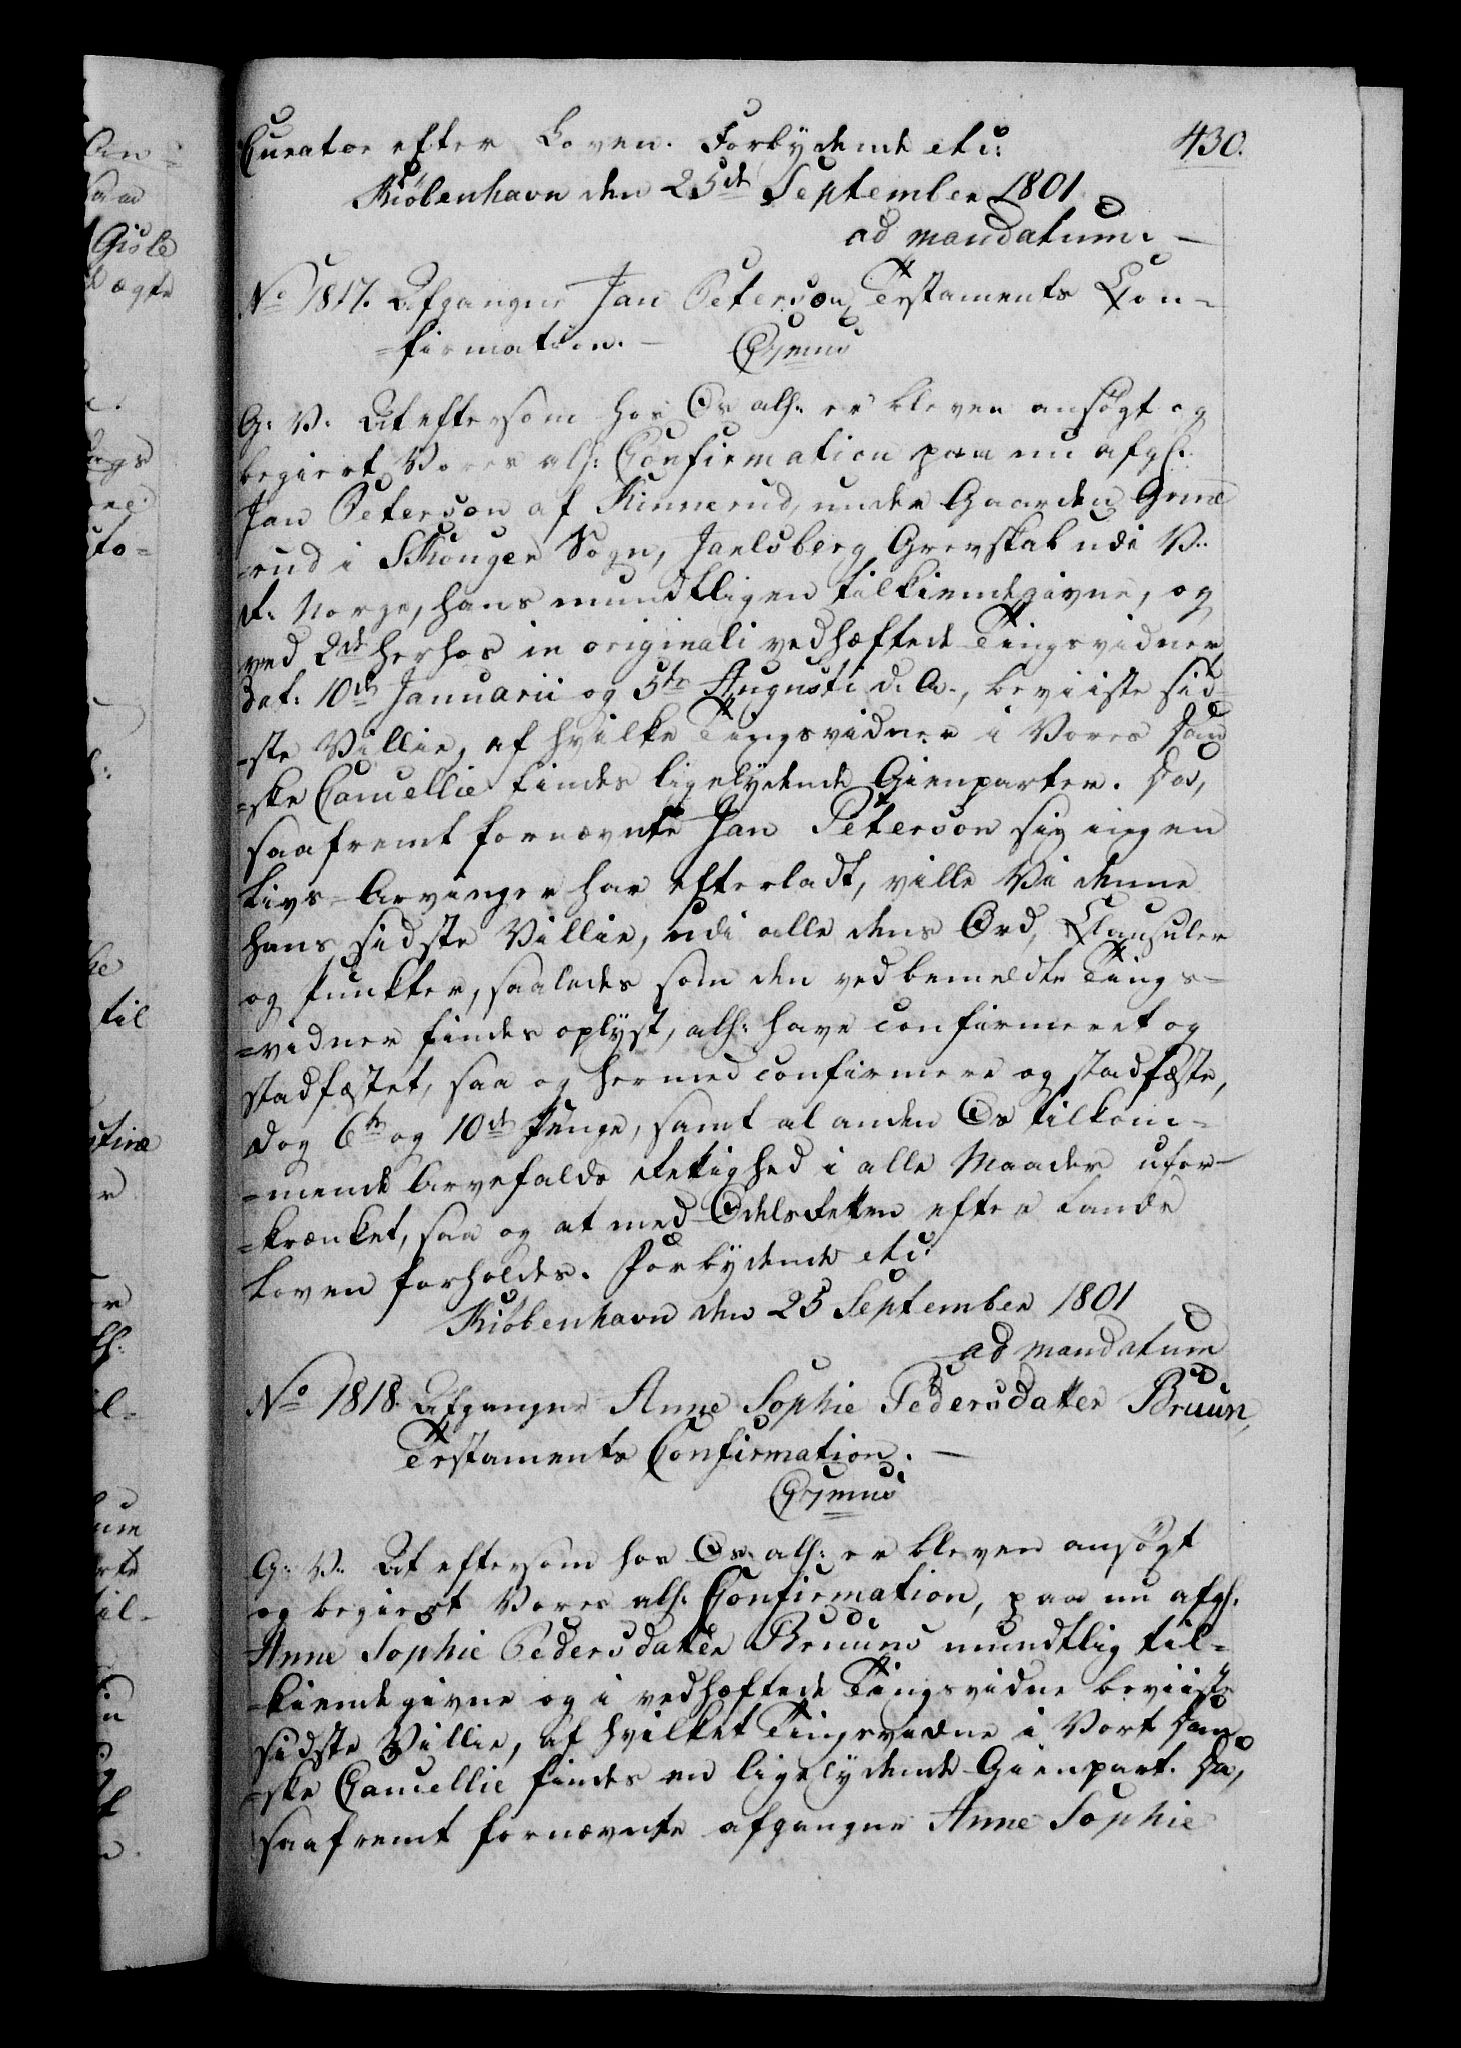 Curator efter Loven. Forbydende etc: 430.
Kiøbenhavn den 25de September 1801
ad mandatum. —
No 1817. Afgangne Jan Peterson Testaments Con-
-firmation. — Gr̃mus
G: V: At eftersom hos Os allh: er bleven ansøgt og
begiert Vores allh: Confirmation paa nu afgl:
Jan Peterson af Kinnerud, under Gaarden Grine
-rud i Skouger Sogn, Jarlsberg Grevskab udi V:
R: Norge, hans mundtligen tilkiendegivne, og
ved 2de herhos in originali vedhæftede Tingsvidner
dat: 10de Januarii og 5te Augusti d. A., beviiste sid-
-ste Villie, af hvilke Tingsvidner i Vores Dan
-ske Cancellie findes ligelydende Gienparter. Da,
saafremt fornævnte Jan Peterson sig ingen
Livs-Arvinger har efterladt, ville Vi denne
hans sidste Villie, udi alle dens Ord, Clausuler
og Punkter, saaledes som den ved bemeldte Tings-
-vidner findes oplyst, allh: have confirmeret og
stadfæstet, saa og hermed confirmere og stadfæste,
dog 6te og 10de Penge, samt al anden Os tilkom-
-mende Arvefalds Rettighed i alle Maader ufor-
-krænket, saa og at med Odels Retten efter Lands
Loven forholdes. Forbydende etc:
Kiøbenhavn den 25 September 1801
ad mandatum
No 1818. Afgangne Anne Sophie Pedersdatter Bruun,
Testaments Confirmation. —
Gr̃mus
G: V: At eftersom hos Os allh: er bleven ansøgt
og begiert Vores allh: Confirmation, paa nu afgl:
Anne Sophie Pedersdatter Bruuns mundtlig til-
-kiendegivne og i vedhæftede Tingsvidne beviiste
sidste Villie, af hvilket Tingsvidne i Vort Dan
-ske Cancellie findes en ligelydende Gienpart. Da,
saafremt fornævnte afgangne Anne Sophie